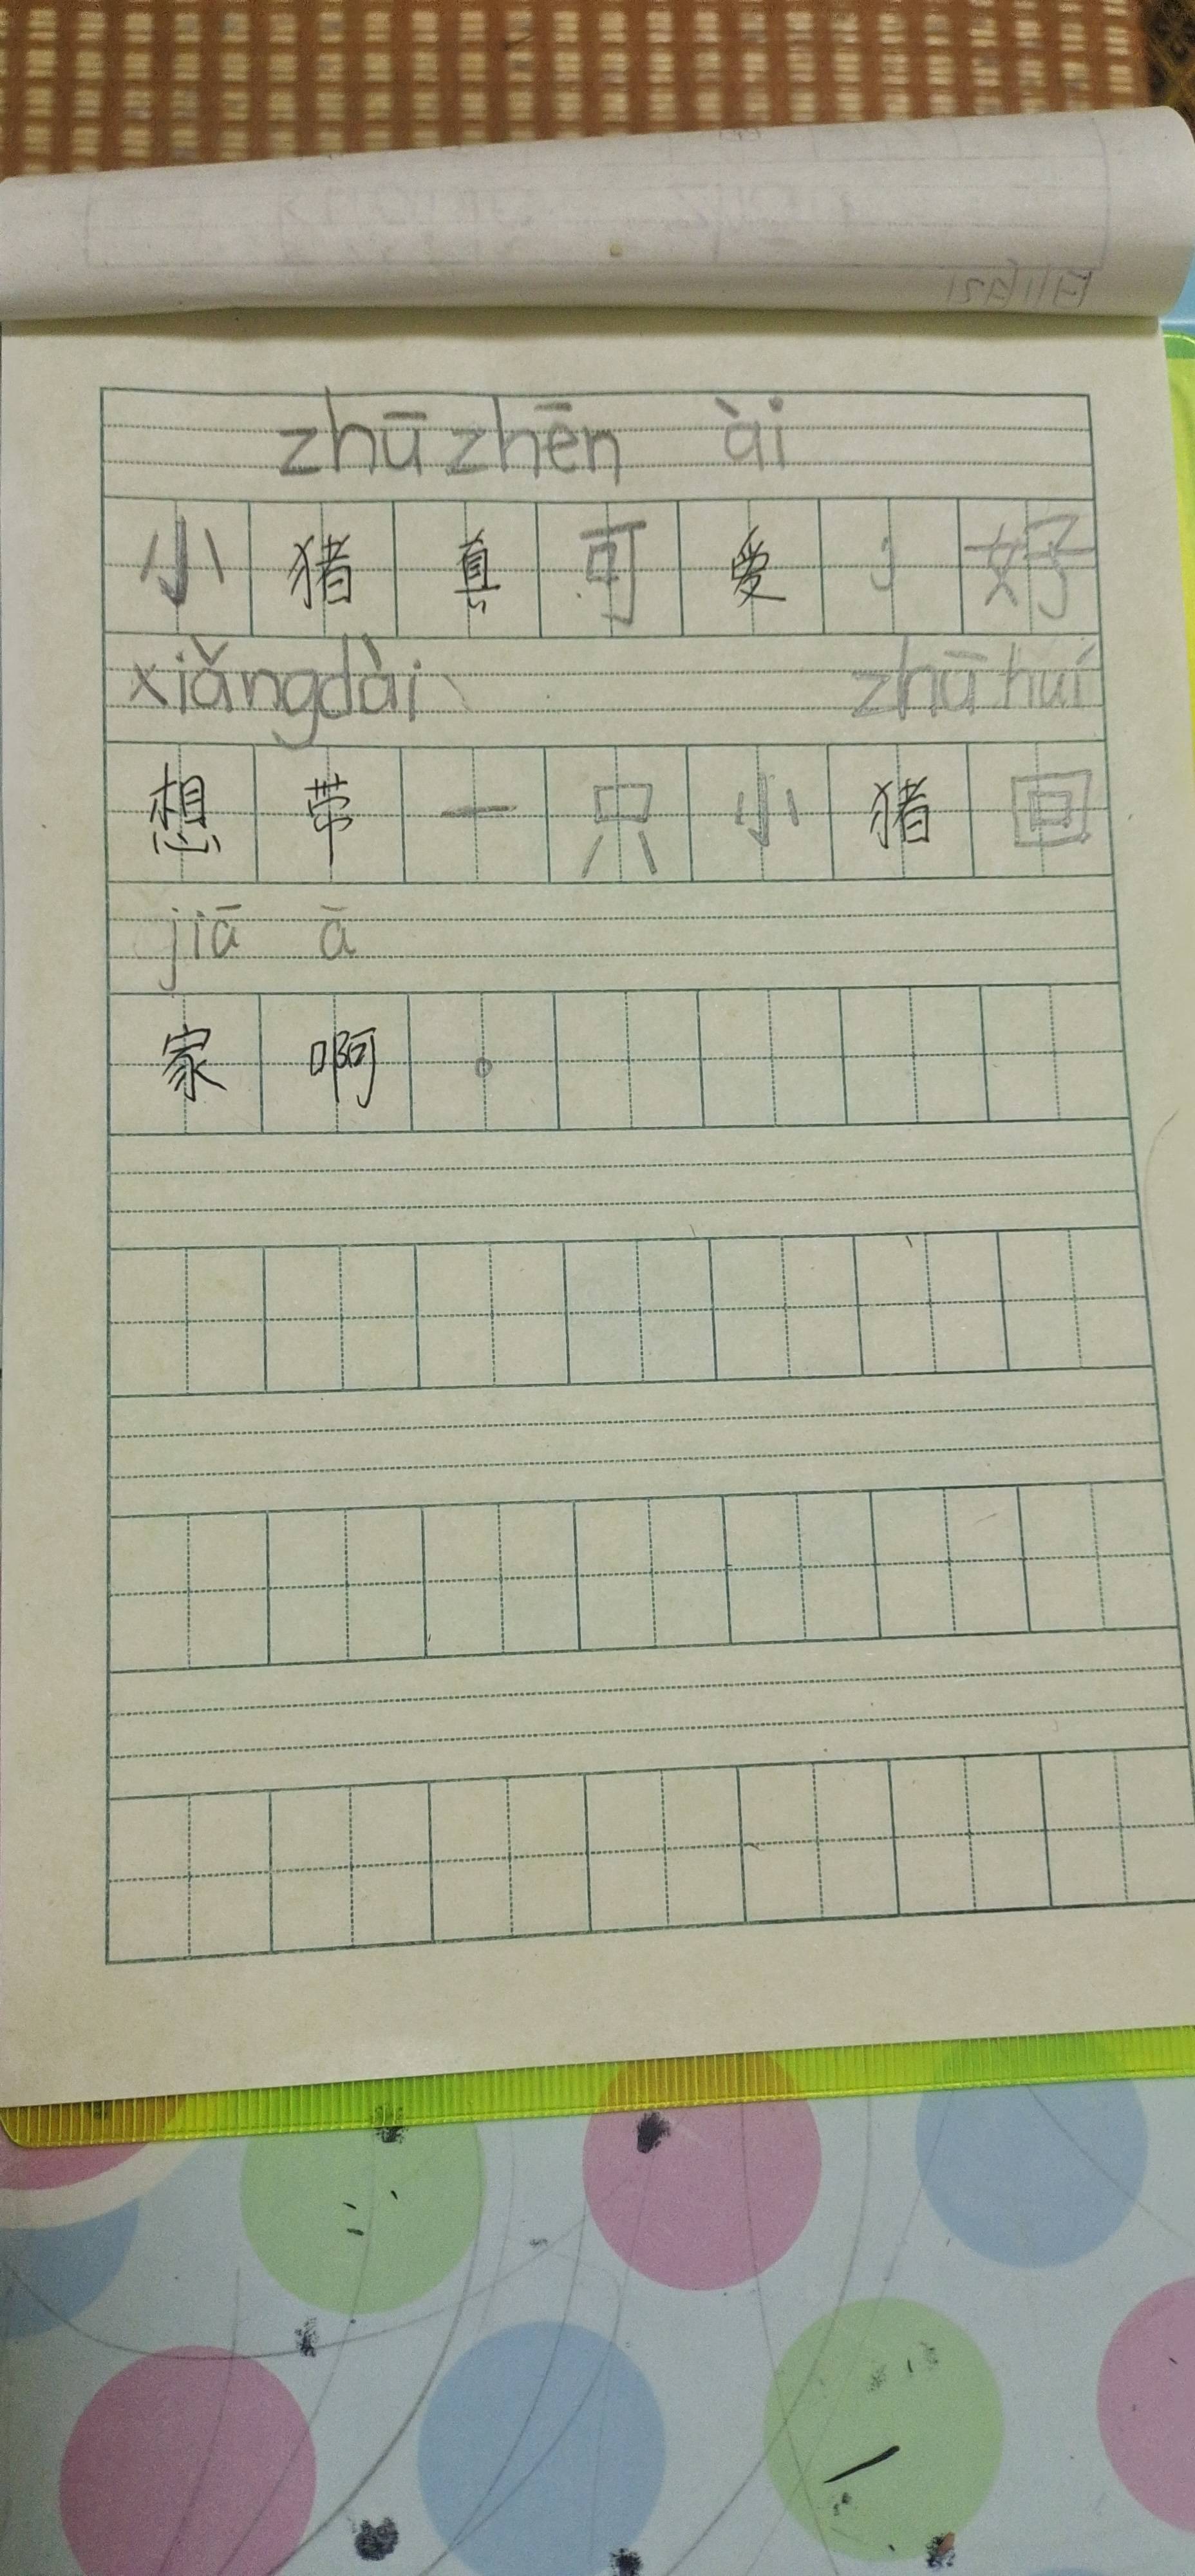 zhū zhēn ài
小猪真可爱，好
xiǎng dài zhū huí
想带一只小猪回
jiā ā
家啊。